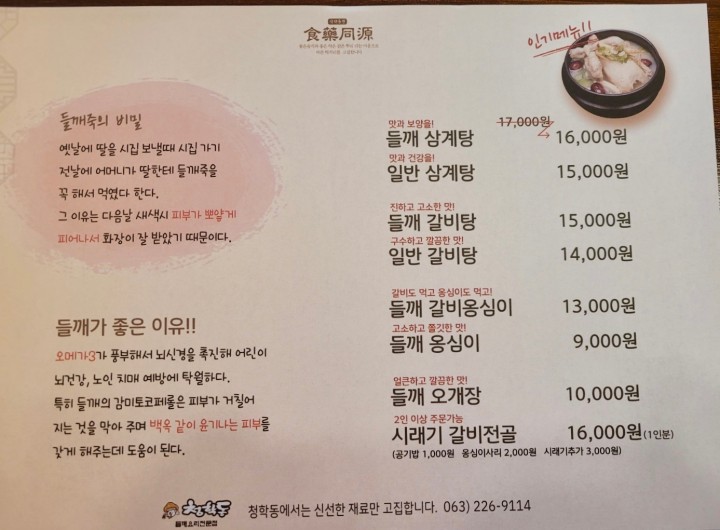 食藥同源
인기메뉴!!
들깨죽의 비밀
옛날에 딸을 시집 보낼때 시집 가기
전날에 어머니가 딸한테 들깨죽을
꼭 해서 먹였다 한다.
그 이유는 다음날 새색시 피부가 뽀얗게
피어나서 화장이 잘 받았기 때문이다.
들깨가 좋은 이유!!
오메가3가 풍부해서 뇌신경을 촉진해 어린이
뇌건강, 노인 치매 예방에 탁월하다.
특히 들깨의 감미토코페롤은 피부가 거칠어
지는 것을 막아 주며 백옥 같이 윤기나는 피부를
갖게 해주는데 도움이 된다.
맛과 보양을!
들깨 삼계탕 17,000원 16,000원
맛과 건강을!
일반 삼계탕 15,000원
진하고 고소한 맛!
들깨 갈비탕 15,000원
구수하고 깔끔한 맛!
일반 갈비탕 14,000원
갈비도 먹고 옹심이도 먹고!
들깨 갈비옹심이 13,000원
고소하고 쫄깃한 맛!
들깨 옹심이 9,000원
얼큰하고 깔끔한 맛!
들깨 오개장 10,000원
2인 이상 주문가능
시래기 갈비전골 16,000원(1인분)
(공기밥 1,000원 옹심이사리 2,000원 시래기추가 3,000원)
청학동
들깨요리전문점
청학동에서는 신선한 재료만 고집합니다. 063) 226-9114